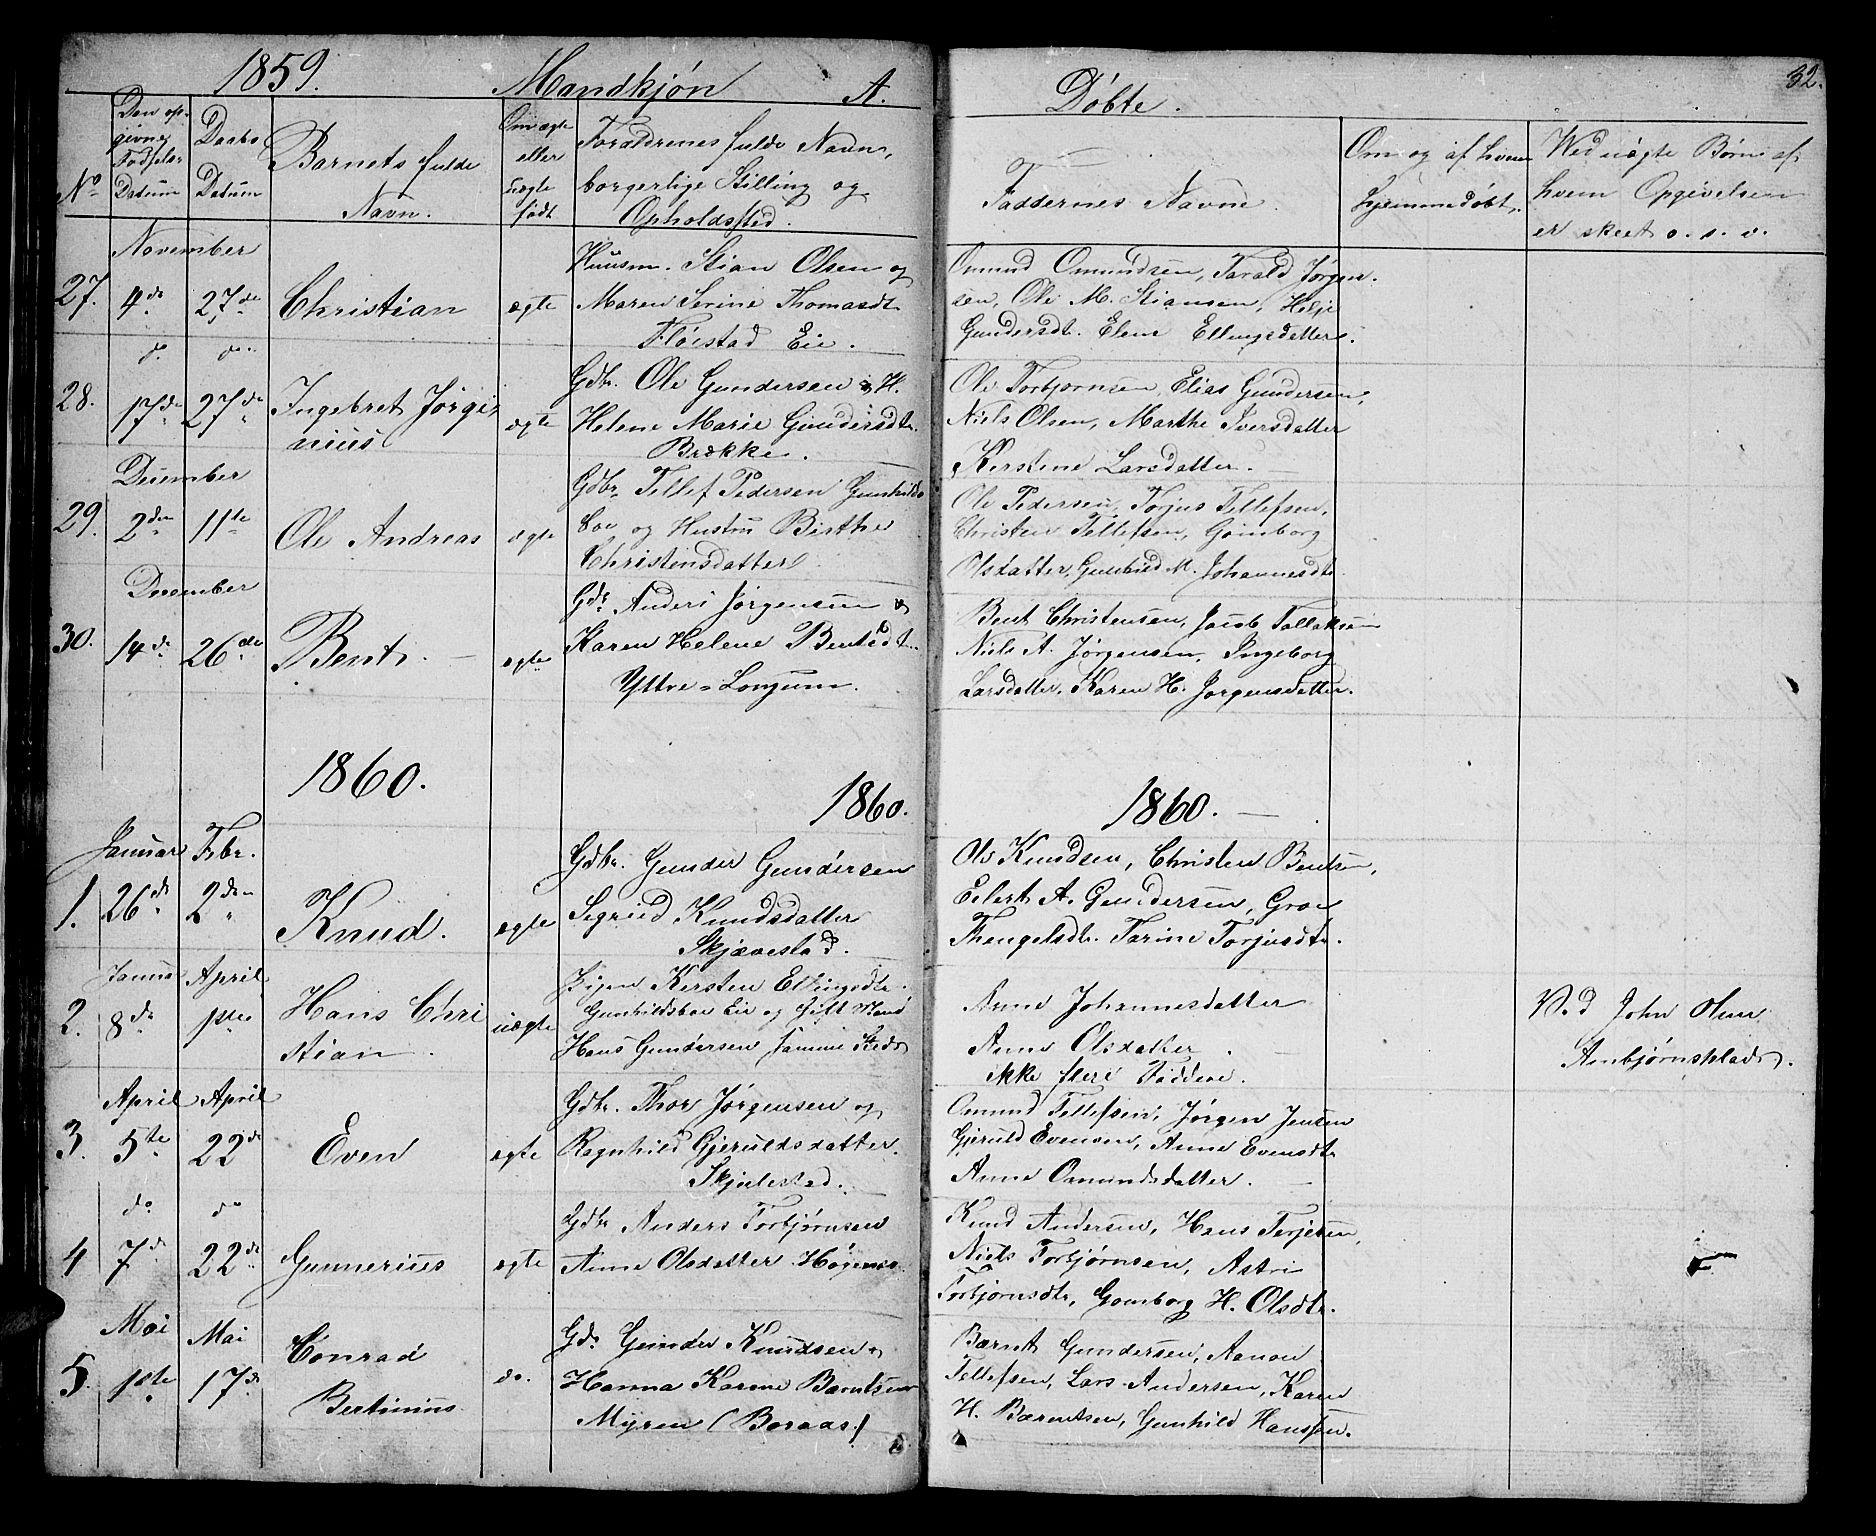 1859. Mandkjøn A.
Døbte. 32.
No
Den op-
givne
Fødsels-
Datum
Daabs
Datum
Barnets fulde
Navn.
Om ægte
eller
uægte
født
Forældrenes fulde Navn,
borgerlige Stilling og
Opholdssted.
Faddernes Navne.
Om og af hvem
hjemmedøbt.
Wed uægte Børn af
hvem Opgivelsen
er skeet o. s. v.
November
27. 4de 27de Christian ægte
Huusm. Stian Olsen og
Maren Serine Thomasdt.
Fløistad Eie.
Omund Omundsen, Tarald Jørgen-
sen, Ole M. Stiansen, Helje
Gundersdt. Elene Ellingsdatter.
do do
28. 17de 27de Ingebret Jørgi
nius ægte
Gdbr. Ole Gundersen & H.
Helene Marie Gundersdtr.
Brække.
Ole Torbjørnsen, Elias Gundersen,
Niels Olsen, Marthe Iversdatter
Kerstene Larsdatter.
December
29. 2den 11te Ole Andreas ægte
Gdbr. Tellef Pedersen Gunhilds
boe og Hustru Birthe
Christensdatter
Ole Pedersen, Torjus Tellefsen,
Christen Tellefsen, Gomborg
Olsdatter, Gunhild M. Johannesdtr.
December
30. 14de 26de Bent. ægte
Gdbr. Anders Jørgensen &
Karen Helene Bentsdt.
Yttre-Longum.
Bent Christensen, Jacob Tallaksen
Niels A. Jørgensen, Ingeborg
Larsdatter, Karen H. Jørgensdatter.
1860. 1860. 1860.
Januar Febr.
1. 26de 2den Knud. ægte
Gdbr. Gunder Gundersen
Sigrid Knudsdatter
Skjævestad.
Ole Knudsen, Christen Bentsen,
Eilert A. Gundersen, Groe
Thengelsdt. Tarine Torjusdtr.
Januar April
2. 8de 1ste Hans Chri
stian. uægte
Pigen Kersten Ellingsdtr.
Gunhildsboe Eie og Gift Mand
Hans Gundersen samme Sted
Anne Johannesdatter
Anne Olsdatter.
ikke flere Faddere.
Ved John Olsen
Ambjørnsplads.
April April
3. 5te 22de Even ægte
Gdbr. Thor Jørgensen og
Ragnhild Gjeruldsdatter.
Skjulestad.
Omund Tellefsen, Jørgen Jensen
Gjeruld Evensen, Anne Evensdtr
Anne Omundsdatter.
do do
4 7de 22de Gunnerius ægte
Gdbr Anders Torbjørnsen
Anne Olsdatter
Knud Andersen, Hans Terjesen,
Niels Torbjørnsen, Astri
Torbjørnsdtr, Gomborg H. Olsdtr.
Mai Mai
5. 1ste 17de Conrad
Bertinius do.
Gdbr Gunder Knudsen &
Hanna Karine Barntsen
Myren (Boraas)
Bærnt Gundersen, Aanon
Tellefsen, Lars Andersen, Karen
H. Bærentsen, Gunhild Hanssen.